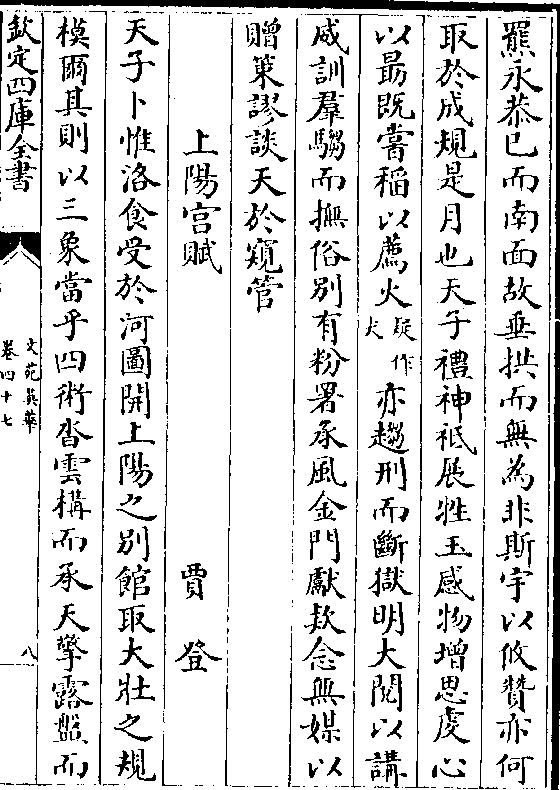 羆永恭已而南面故垂拱而無為非斯宇以攸贊亦何
取於成規是月也天子禮神祇展牲玉感物增思虔心
以勗既嘗稲以薦火疑作犬亦趨刑而斷獄明大閱以講
威訓羣騶而撫俗別有粉署承風金門獻欵念無媒以
贈菓謬談天於窺管
上陽宫賦 賈登
天子卜惟洛食受於河圖開上陽之別館取大壯之規
模爾其則以三象當乎四術沓雲構而承天擎露盤而
欽定四庫全書
文苑英華
卷四十七
八